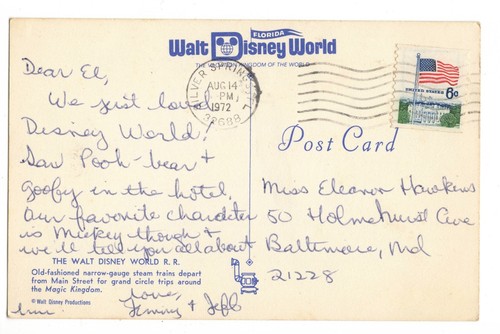 FLORIDA
Walt Disney World
THE VACATION KINGDOM OF THE WORLD
SILVER SPRINGS, FL
AUG 14
PM
1972
32688
UNITED STATES
6c
Dear El,
We just loved
Disney World!
Saw Pooh-bear +
goofy in the hotel.
Our favorite character
is Mickey though +
we'll tell you all about
love,
Jimmy + Jeff
Post Card
Miss Eleanor Hawkins
50 Holmehurst Ave
Baltimore, Md
21228
THE WALT DISNEY WORLD R.R.
Old-fashioned narrow-gauge steam trains depart
from Main Street for grand circle trips around
the Magic Kingdom.
© Walt Disney Productions